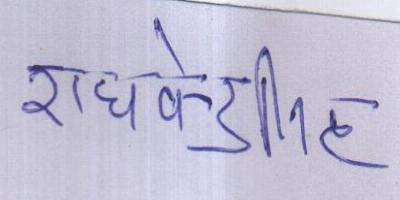 राघवेन्द्रसिंह